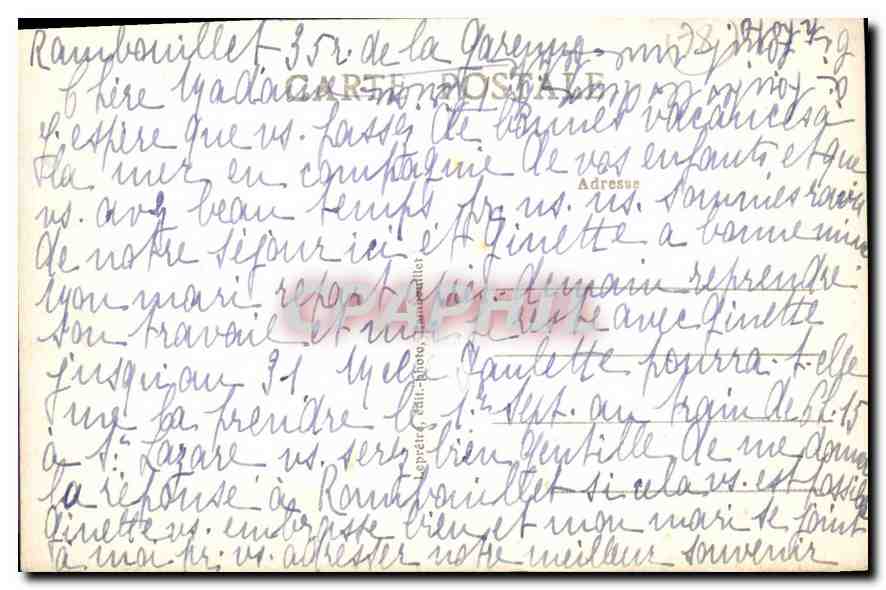 Rambouillet 35 r. de la Garenne
CARTE POSTALE
Chère Madame
J'espère que vs. passez de bonnes vacances à
la mer en compagnie de vos enfants et que
Adresse
vs. avez beau temps pr. ns. ns. sommes ravis
de notre séjour ici et Ginette a bonne mine
Mon mari repart demain reprendre
CPAPHIL
son travail et moi je reste avec Ginette
jusqu'au 31 Melle Paulette pourra-t-elle
me la prendre le 1er sept. au train de 6h.15
à St. Lazare vs. serez bien gentille de me donner
la réponse à Rambouillet si cela vs. est possible
Ginette vs. embrasse bien et mon mari se joint
à moi pr. vs. adresser notre meilleur souvenir
Leprêtre, édit.-photo, Rambouillet